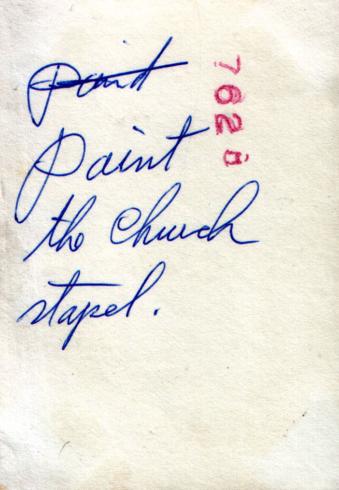 Paint
Paint
the Church
stapel.
762